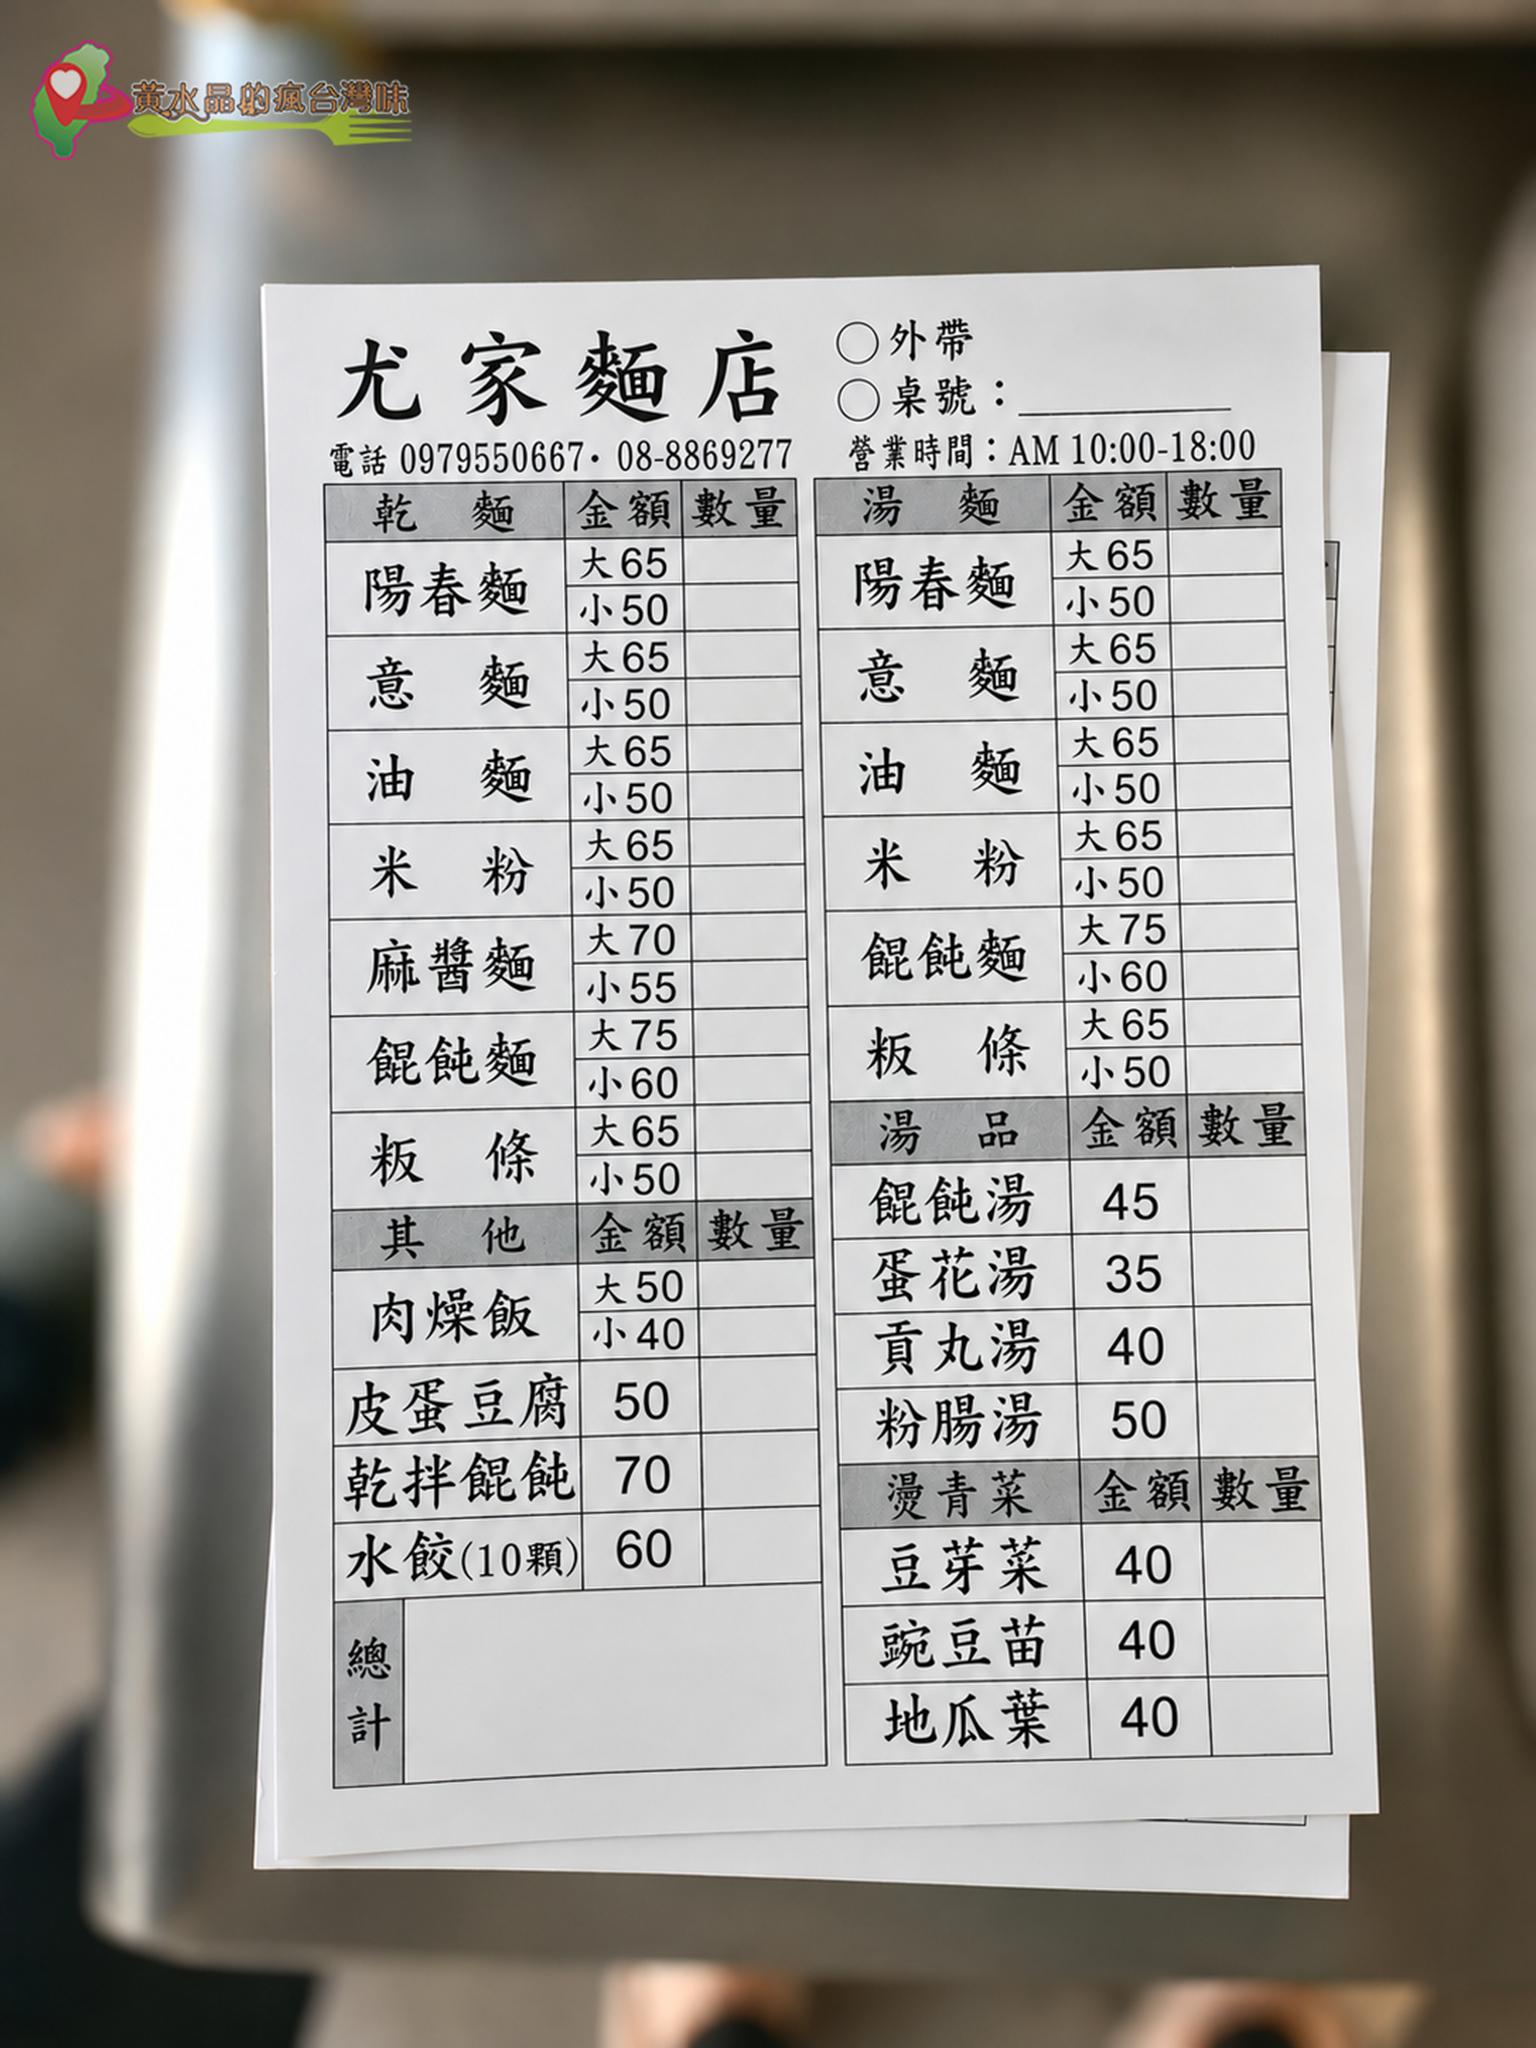 黃水晶的瘋台灣味
尤家麵店
○外帶
○桌號：
電話 0979550667・08-8869277
營業時間：AM 10:00-18:00
乾麵 金額 數量
陽春麵 大65
小50
意麵 大65
小50
油麵 大65
小50
米粉 大65
小50
麻醬麵 大70
小55
餛飩麵 大75
小60
粄條 大65
小50
其他 金額 數量
肉燥飯 大50
小40
皮蛋豆腐 50
乾拌餛飩 70
水餃(10顆) 60
總計
湯麵 金額 數量
陽春麵 大65
小50
意麵 大65
小50
油麵 大65
小50
米粉 大65
小50
餛飩麵 大75
小60
粄條 大65
小50
湯品 金額 數量
餛飩湯 45
蛋花湯 35
貢丸湯 40
粉腸湯 50
燙青菜 金額 數量
豆芽菜 40
豌豆苗 40
地瓜葉 40